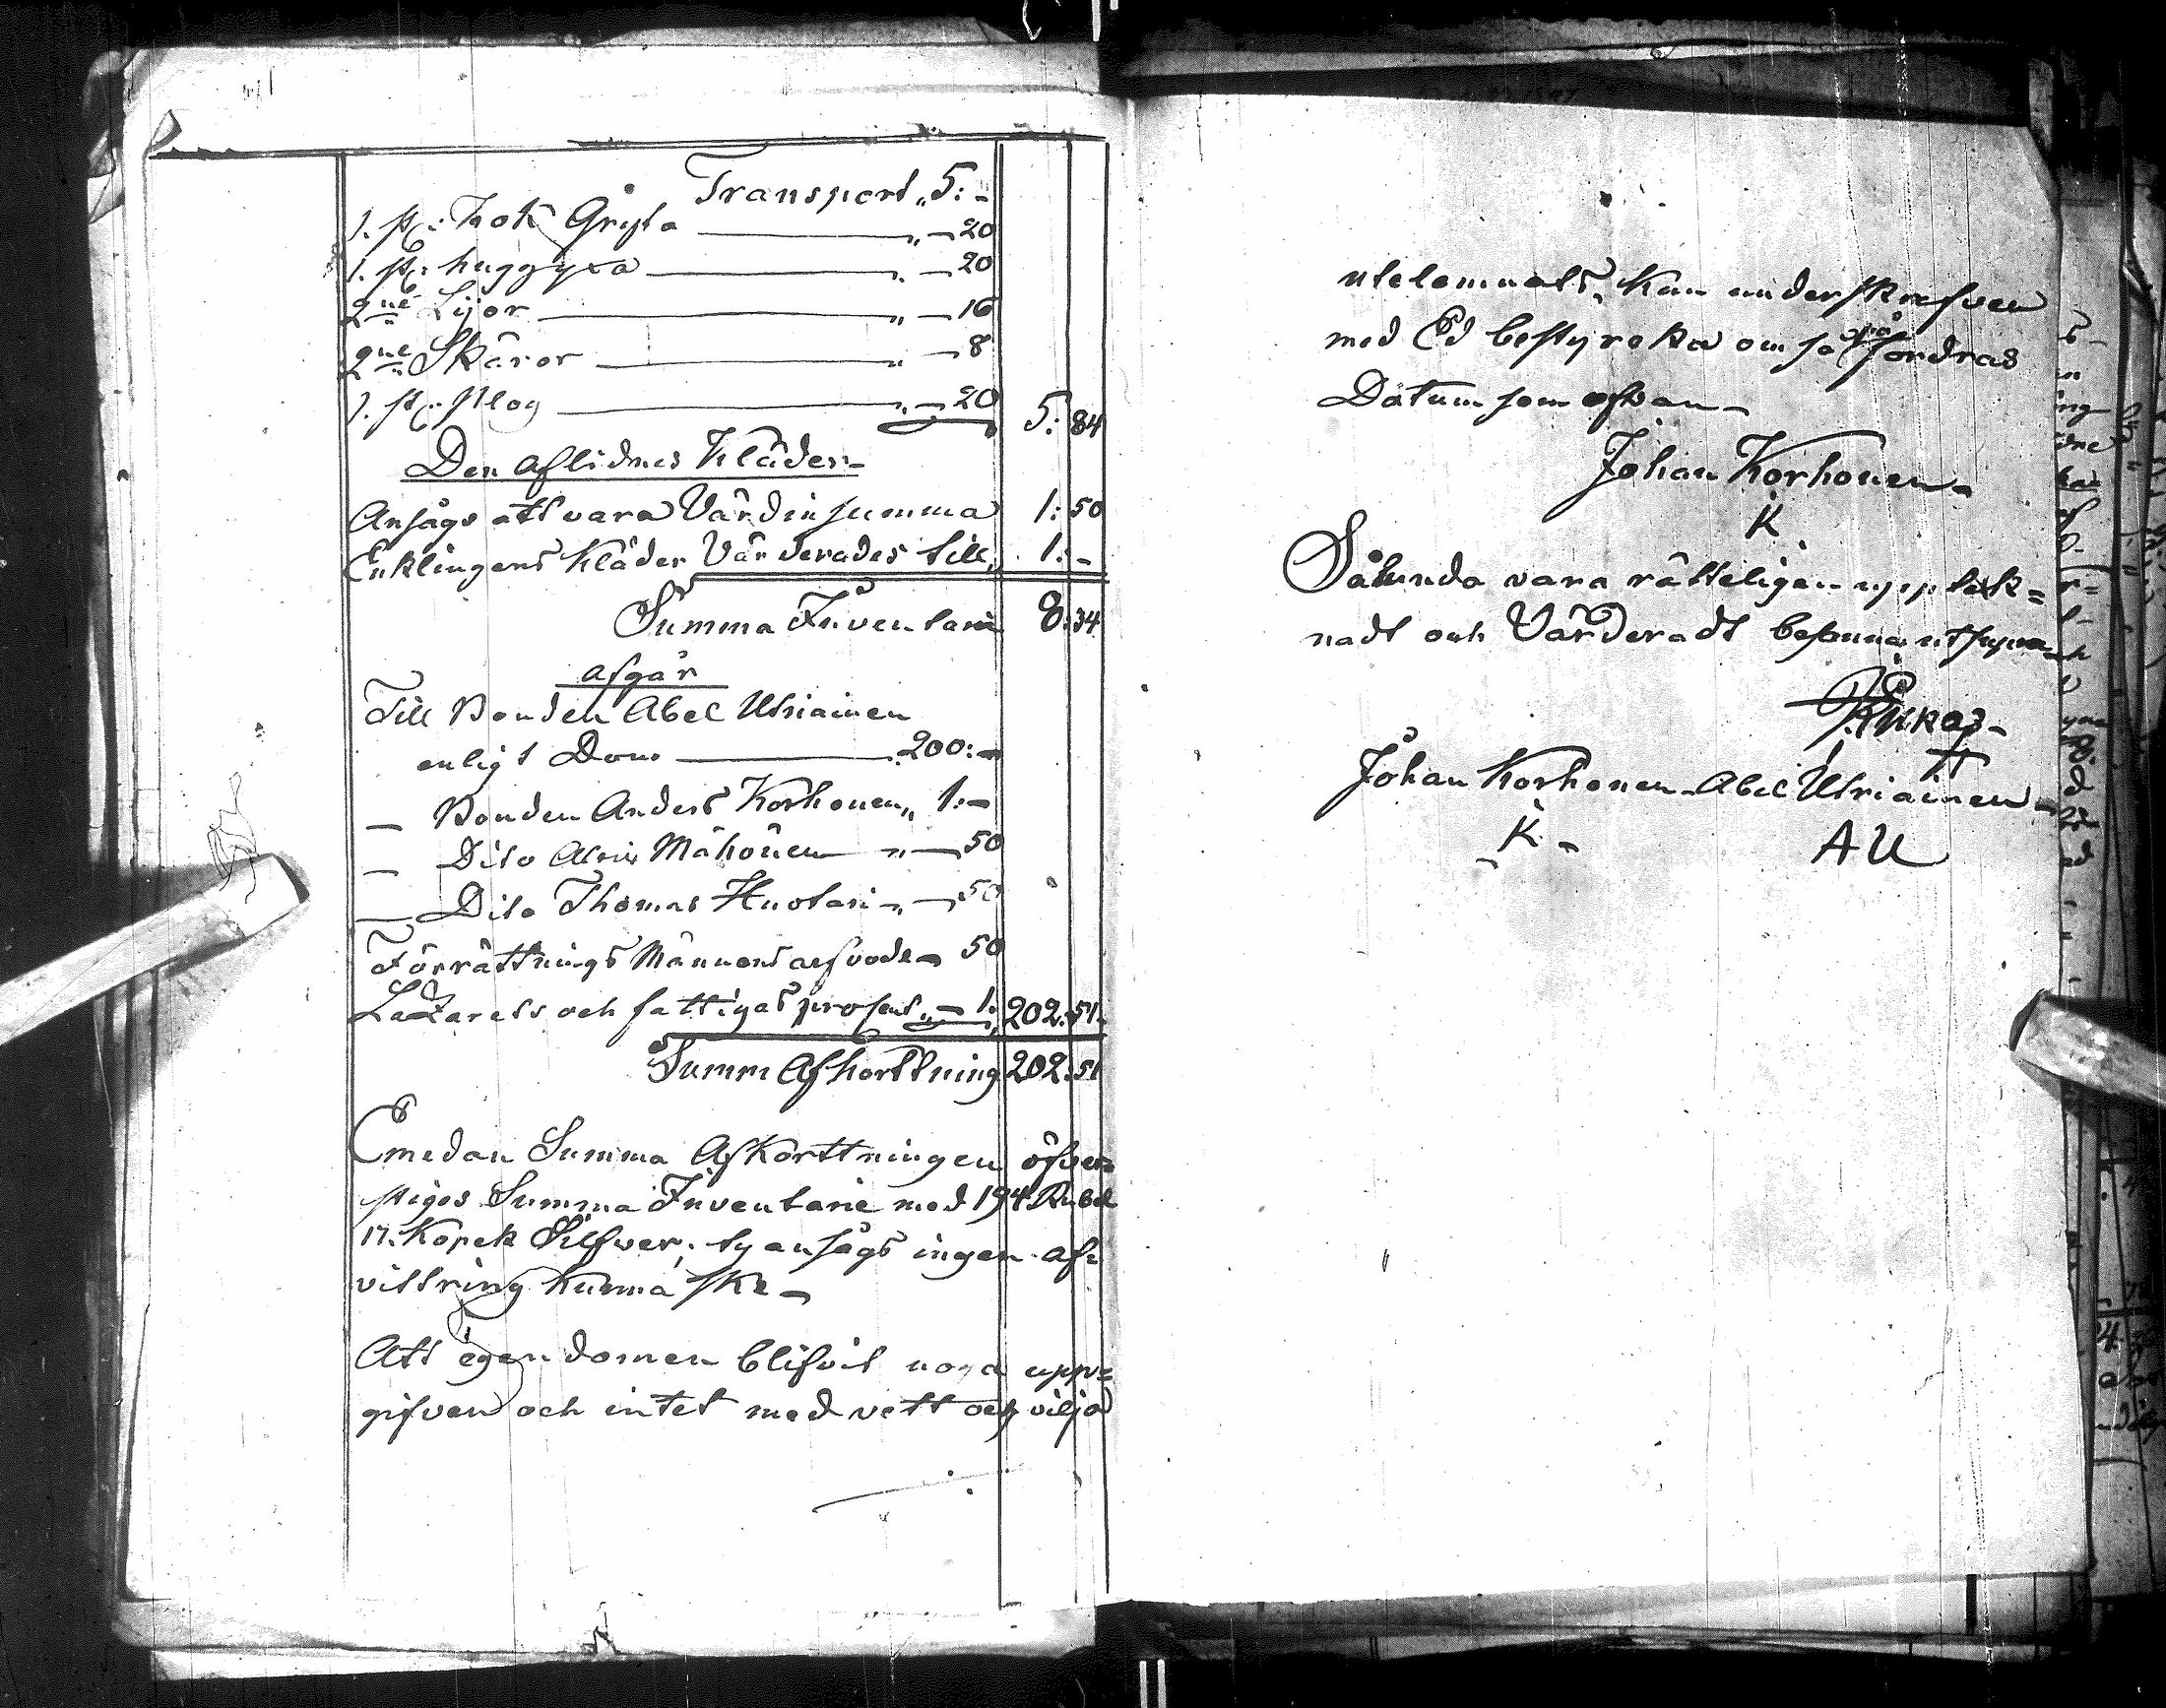 Transport „ 5: -
1. st: Kok Gryta „ - 20
1. st: huggyxa „ - 20
2ne Lijor „ - 16
2ne Skäror „ - 8
1. st: Plog „ - 20 5: 84
Den Aflidnes Kläder -
Ansågs att vara Värd in summa 1: 50
Enklingens Kläder Värderades till, 1: -
Summa Inventarie 8: 34
Afgår
Till Bonden Abel Uhriainen
enligt Dom 200: -
— Bonden Anders Korhonen „ 1: -
— Dito Mähönen „ - 50
— Dito Thomas Huotari - „ - 50
Förrättnings Männens arfvode - 50
Lazaretts och fattigas prosent „ - 1. 202: 51.
Summ Afkorttning 202: 51
Emedan Summa Afkorttningen öfver-
stiges Summa Inventarie med 194 Rubel
17. Kopek Silfver; ty ansågs ingen af=
vittring kunna ske -
Att egendomen blifvit noga upp=
gifven och intet med vett och vilja
utelemnats, kan underskrefven
med Ed bestyrcka om så påfordras
Datum som ofvan -
Johan Korhonen -
K
Sålunda vara rätteligen uppteck=
nadt och Värderadt
Johan Korhonen - Abel Uhriainen -
- K - AU